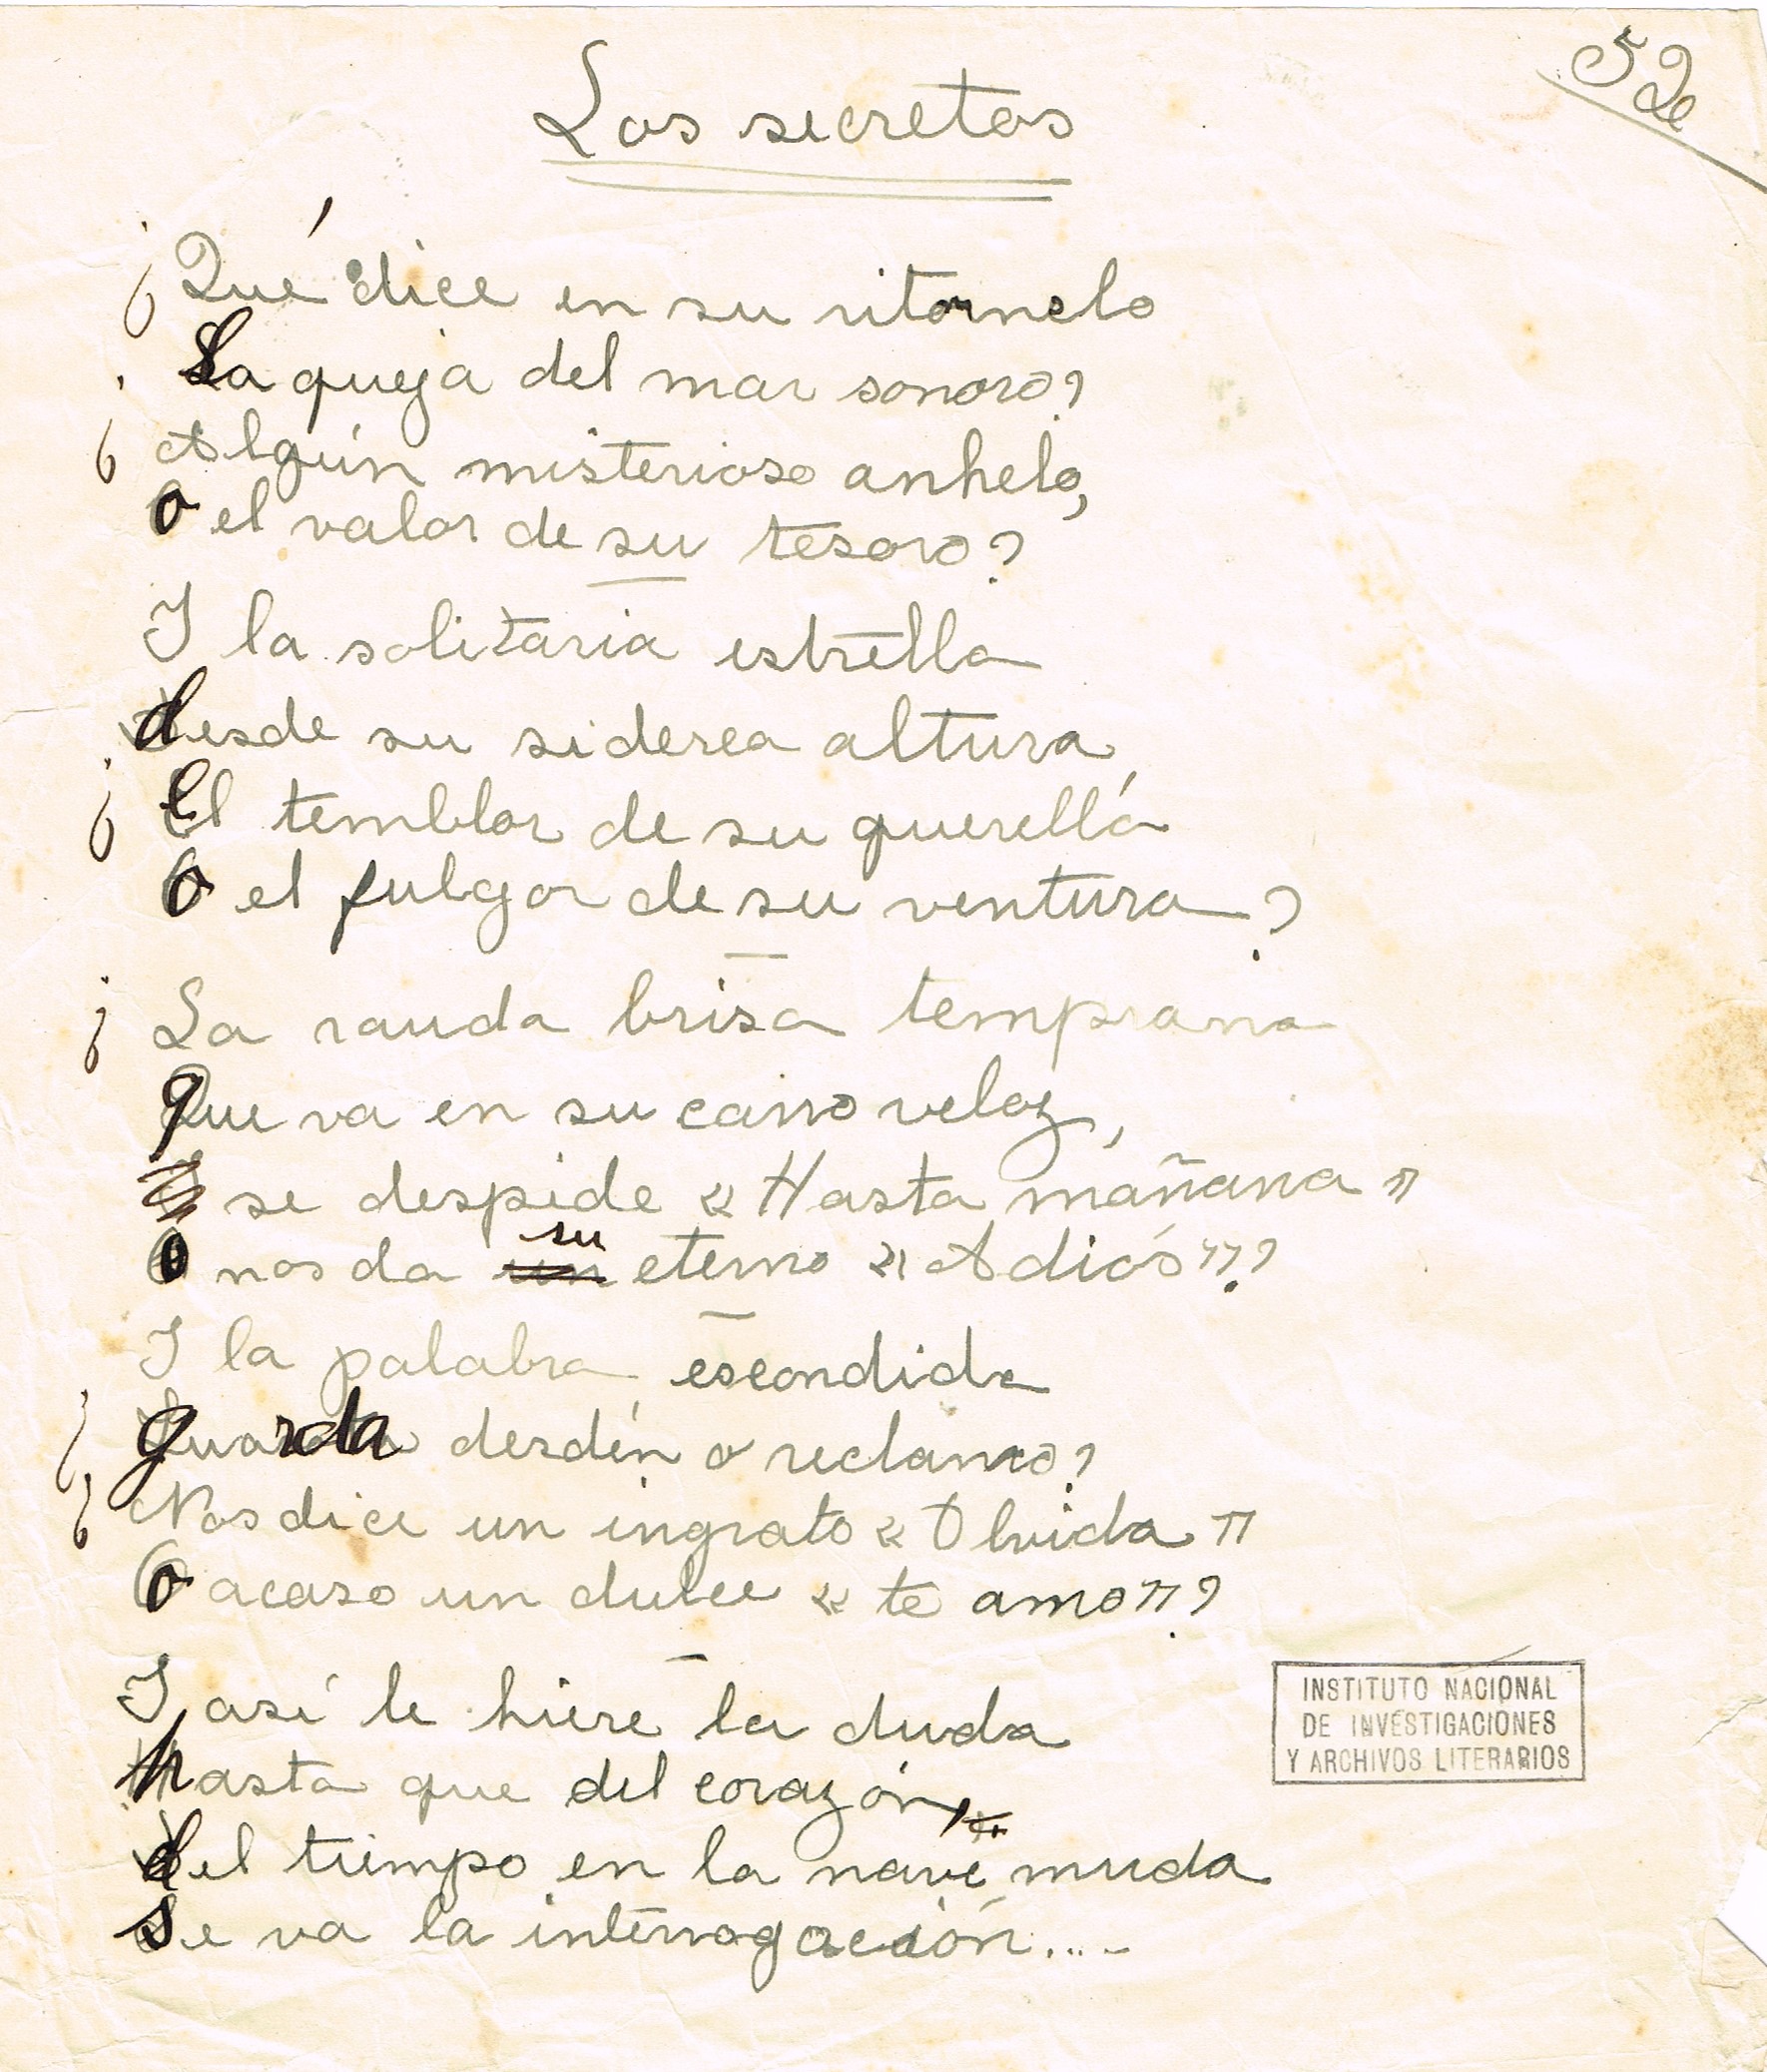 52
Los secretos
¿Qué dice en su ritornelo
La queja del mar sonoro?
¿Algún misterioso anhelo,
o el valor de su tesoro?
I la solitaria estrella
desde su siderea altura,
¿El temblor de su querella
o el fulgor de su ventura?
¿La rauda brisa temprana
que va en su carro veloz,
se despide « Hasta mañana »
o nos da su eterno « Adiós»?
I la palabra escondida
¿guarda desdén o reclamo?
¿Nos dice un ingrato « Olvida »
o acaso un dulce « te amo»?
I así le hiere la duda
hasta que del corazón,
del tiempo en la nave muda
se va la interrogación....
INSTITUTO NACIONAL
DE INVESTIGACIONES
Y ARCHIVOS LITERARIOS